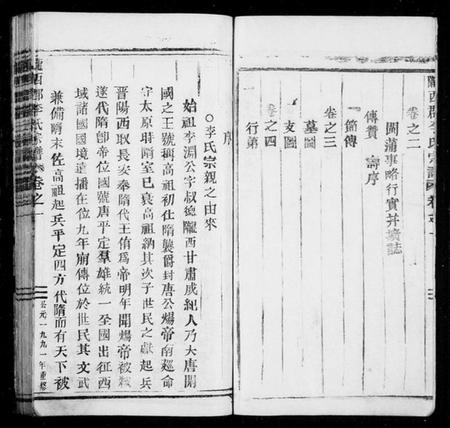 隴西郡李氏宗譜 卷之一
卷之二
閫蒲事略行實并壙誌
傳贊 壽序
節傳
卷之三
墓圖
支圖
卷之四
行第
序
○李氏宗親之由來
始祖李淵公字叔德隴西甘肅成紀人乃大唐開
國之王號稱高祖初仕隋襲爵封唐公煬帝南廵命
守太原時隋室已衰高祖納其次子世民之獻起兵
晉陽西取長安奉隋代王侑爲帝明年聞煬帝被弒
遂代隋卽帝位國號唐平定羣雄統一全國出征西
域諸國國境遠播在位九年廟傳位於世民其文武
兼備隋末佐高祖起兵平定四方代隋而有天下被
隴西郡李氏宗譜 卷之一
公元一九九一年重修